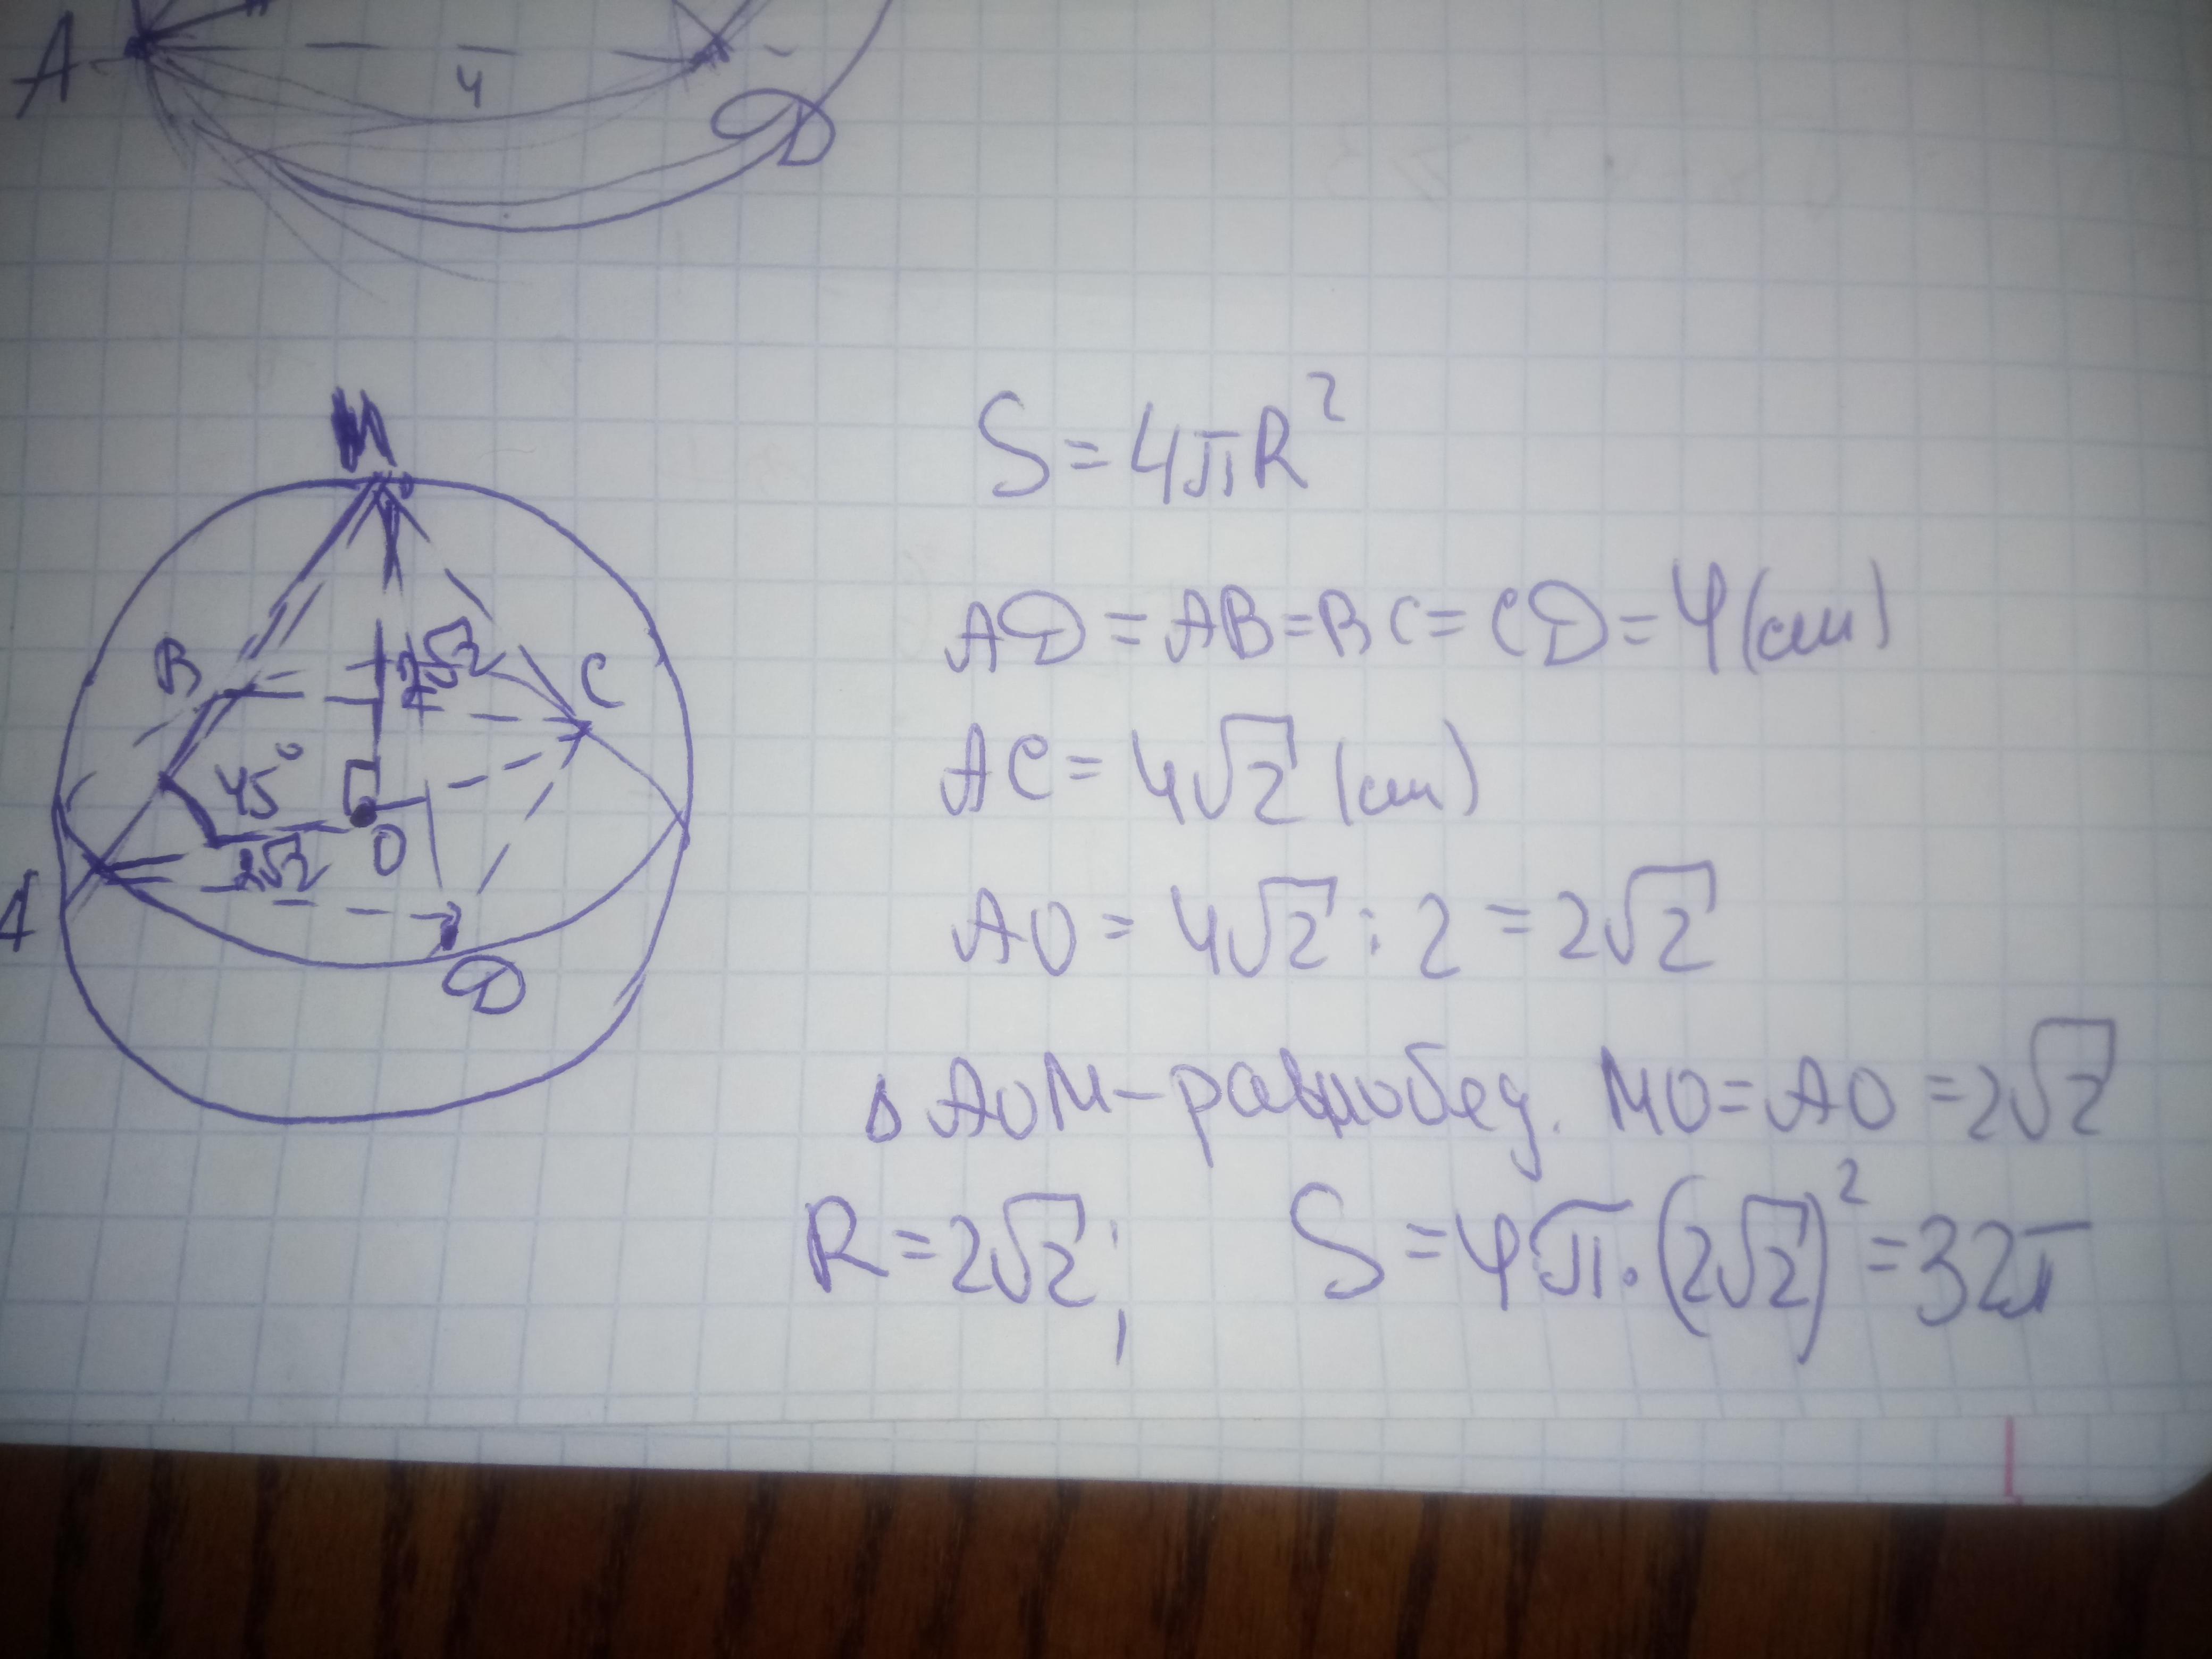 A
4
D
M
B
C
2√2
45°
O
2√2
A
D
S = 4πR²
AD = AB = BC = CD = 4 (см)
AC = 4√2 (см)
AO = 4√2 : 2 = 2√2
Δ AOM – равнобед. MO = AO = 2√2
R = 2√2; S = 4π · (2√2)² = 32π